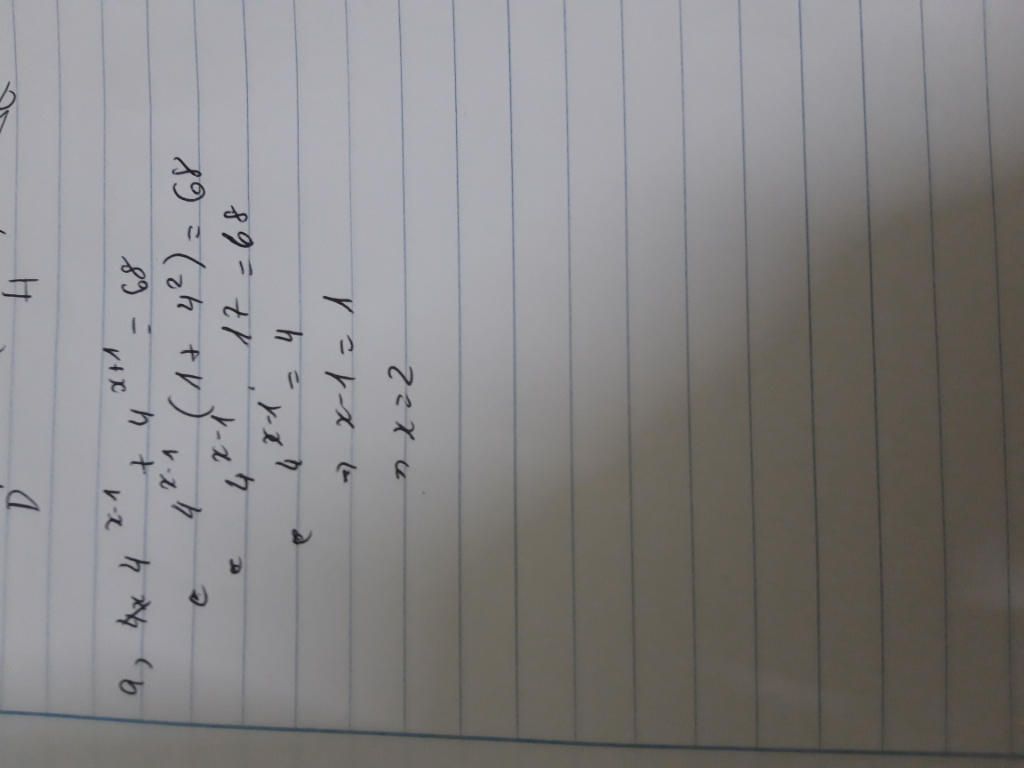 D H
a, 4^{x-1} + 4^{x+1} = 68
4^{x-1} (1 + 4^2) = 68
4^{x-1} . 17 = 68
4^{x-1} = 4
⇒ x-1 = 1
⇒ x = 2